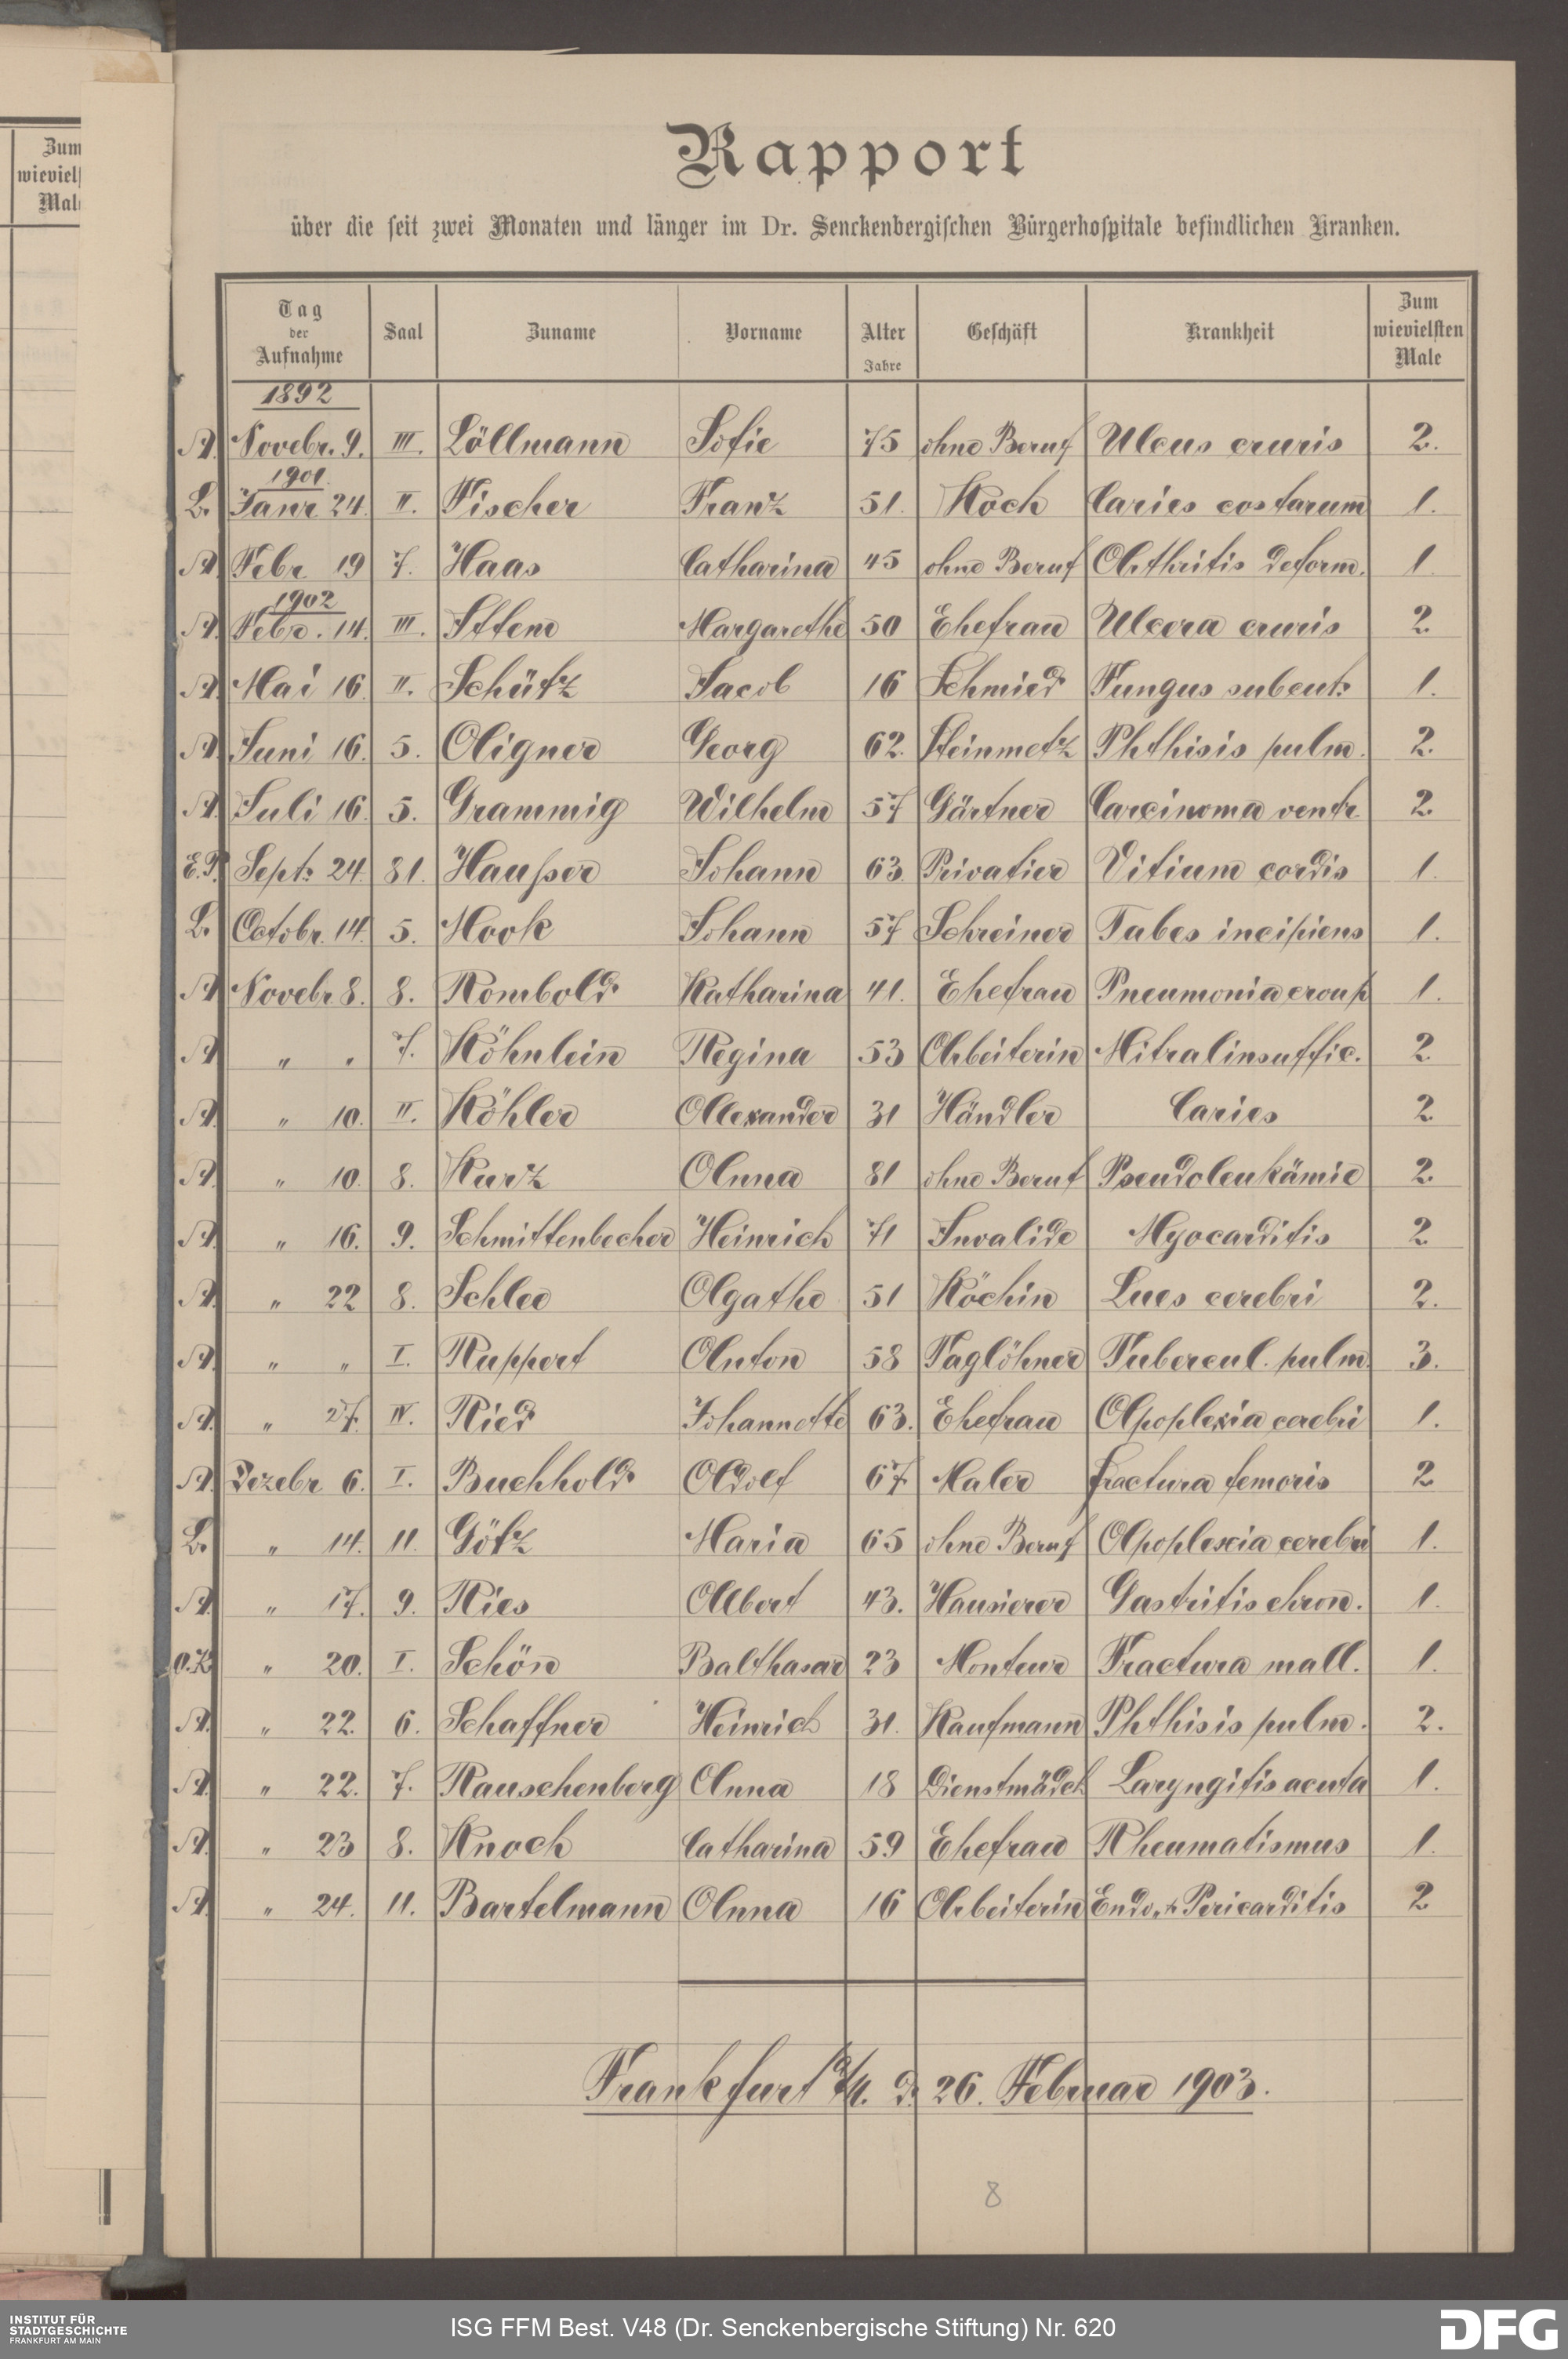 Zum
wieviel
Mal
Rapport
über die seit zwei Monaten und länger im Dr. Senckenbergischen Bürgerhospitale befindlichen Kranken.
Tag der Aufnahme Saal Zuname Vorname Alter Jahre Geschäft Krankheit Zum wievielsten Male
1892
A. Novebr. 9. III. Löllmann Sofie 75 ohne Beruf Ulcus cruris 2.
1901.
L. Janr. 24. II. Fischer Franz 51. Koch Caries costarum 1.
A. Febr. 19 7. Haas Catharina 45 ohne Beruf Arthritis deform. 1.
1902
A. Febr. 14. III. Stfem Margarethe 50 Ehefrau Ulcera cruris 2.
A. Mai 16. II. Schütz Jacob 16 Schmied Fungus subcut. 1.
A. Juni 16. 5. Aligner Georg 62. Steinmetz Phthisis pulm. 2.
A. Juli 16. 5. Grammig Wilhelm 57 Gärtner Carcinoma ventr. 2.
E.P. Sept. 24. 81. Hausser Johann 63. Privatier Vitium cordis 1.
L. Octobr. 14. 5. Mook Johann 57 Schreiner Tabes incipiens 1.
A. Novebr. 8. 8. Rombold Katharina 41. Ehefrau Pneumonia croup 1.
A. " " 7. Köhnlein Regina 53 Arbeiterin Mitralinsuffic. 2.
A. " 10. II. Köhler Allexander 31 Händler Caries 2.
A. " 10. 8. Kurz Anna 81 ohne Beruf Pseudoleukämie 2.
A. " 16. 9. Schmittenbecher Heinrich 71 Invalide Myocarditis 2
A. " 22 8. Schlee Agathe 51 Köchin Lues cerebri 2.
A. " " I. Ruppert Anton 58 Taglöhner Tubercul. pulm. 3.
A. " 27. IV. Ried Johannette 63. Ehefrau Apoplexia cerebri 1.
A. Dezebr. 6. I. Buchhold Adolf 67 Maler fractura femoris 2
L. " 14. 11. Götz Maria 65 ohne Beruf Apoplexia cerebri 1.
A. " 17. 9. Ries Albert 43. Hausierer Gastritis chron. 1.
O.K. " 20. I. Schön Balthasar 23 Monteur Fractura mall. 1.
A. " 22. 6. Schaffner Heinrich 31. Kaufmann Phthisis pulm. 2.
A. " 22. 7. Rauschenberg Anna 18 Dienstmädch Laryngitis acuta 1.
A. " 23 8. Knoch Catharina 59 Ehefrau Rheumatismus 1.
A. " 24. 11. Bartelmann Anna 16 Arbeiterin Endo. u. Pericarditis 2
Frankfurt a/M. d. 26. Februar 1903.
8
INSTITUT FÜR
STADTGESCHICHTE
FRANKFURT AM MAIN
ISG FFM Best. V48 (Dr. Senckenbergische Stiftung) Nr. 620
DFG